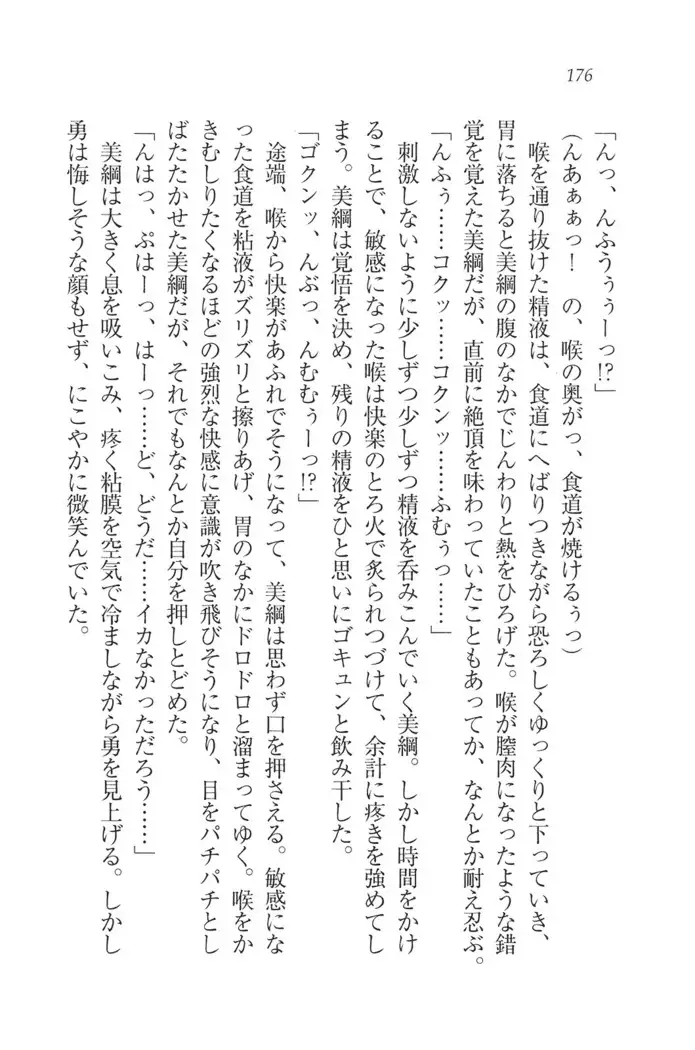 176
「んっ、んふうぅぅーっ!?」
(んあぁぁっ！　の、喉の奥がっ、食道が焼けるぅっ)
　喉を通り抜けた精液は、食道にへばりつきながら恐ろしくゆっくりと下っていき、
胃に落ちると美綱の腹のなかでじんわりと熱をひろげた。喉が膣肉になったような錯
覚を覚えた美綱だが、直前に絶頂を味わっていたこともあってか、なんとか耐え忍ぶ。
「んふぅ……コクッ……コクンッ……ふむぅっ……」
　刺激しないように少しずつ少しずつ精液を呑みこんでいく美綱。しかし時間をかけ
ることで、敏感になった喉は快楽のとろ火で炙られつづけて、余計に疼きを強めてし
まう。美綱は覚悟を決め、残りの精液をひと思いにゴキュンと飲み干した。
「ゴクンッ、んぶっ、んむむぅーっ!?」
　途端、喉から快楽があふれでそうになって、美綱は思わず口を押さえる。敏感にな
った食道を粘液がズリズリと擦りあげ、胃のなかにドロドロと溜まってゆく。喉をか
きむしりたくなるほどの強烈な快感に意識が吹き飛びそうになり、目をパチパチとし
ばたたかせた美綱だが、それでもなんとか自分を押しとどめた。
「んはっ、ぷはーっ、はーっ……ど、どうだ……イカなかっただろう……」
　美綱は大きく息を吸いこみ、疼く粘膜を空気で冷ましながら勇を見上げる。しかし
勇は悔しそうな顔もせず、にこやかに微笑んでいた。